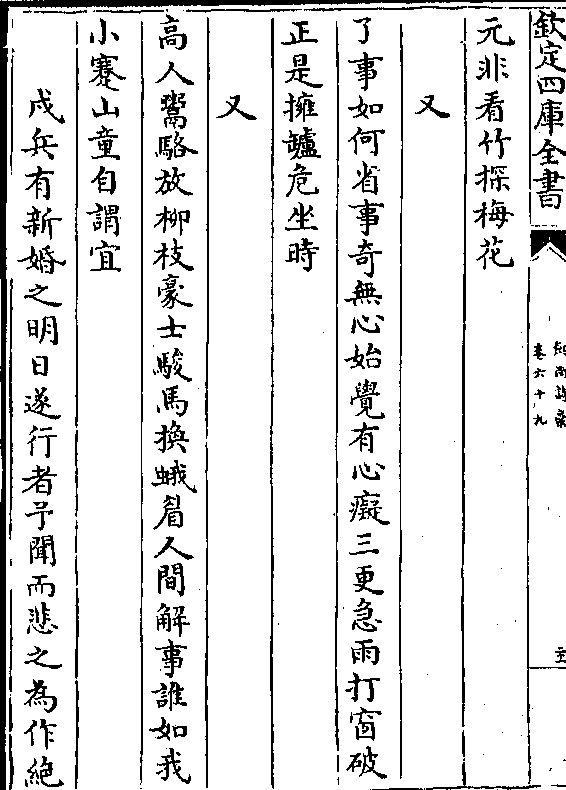 欽定四庫全書
卷六十九
元非看竹探梅花
又
了事如何省事奇無心始覺有心癡三更急雨打窗破
正是擁罏危坐時
又
高人鬻駱放柳枝豪士駿馬換蛾眉人間解事誰如我
小蹇山童自謂宜
戍兵有新婚之明日遂行者予聞而悲之為作絶